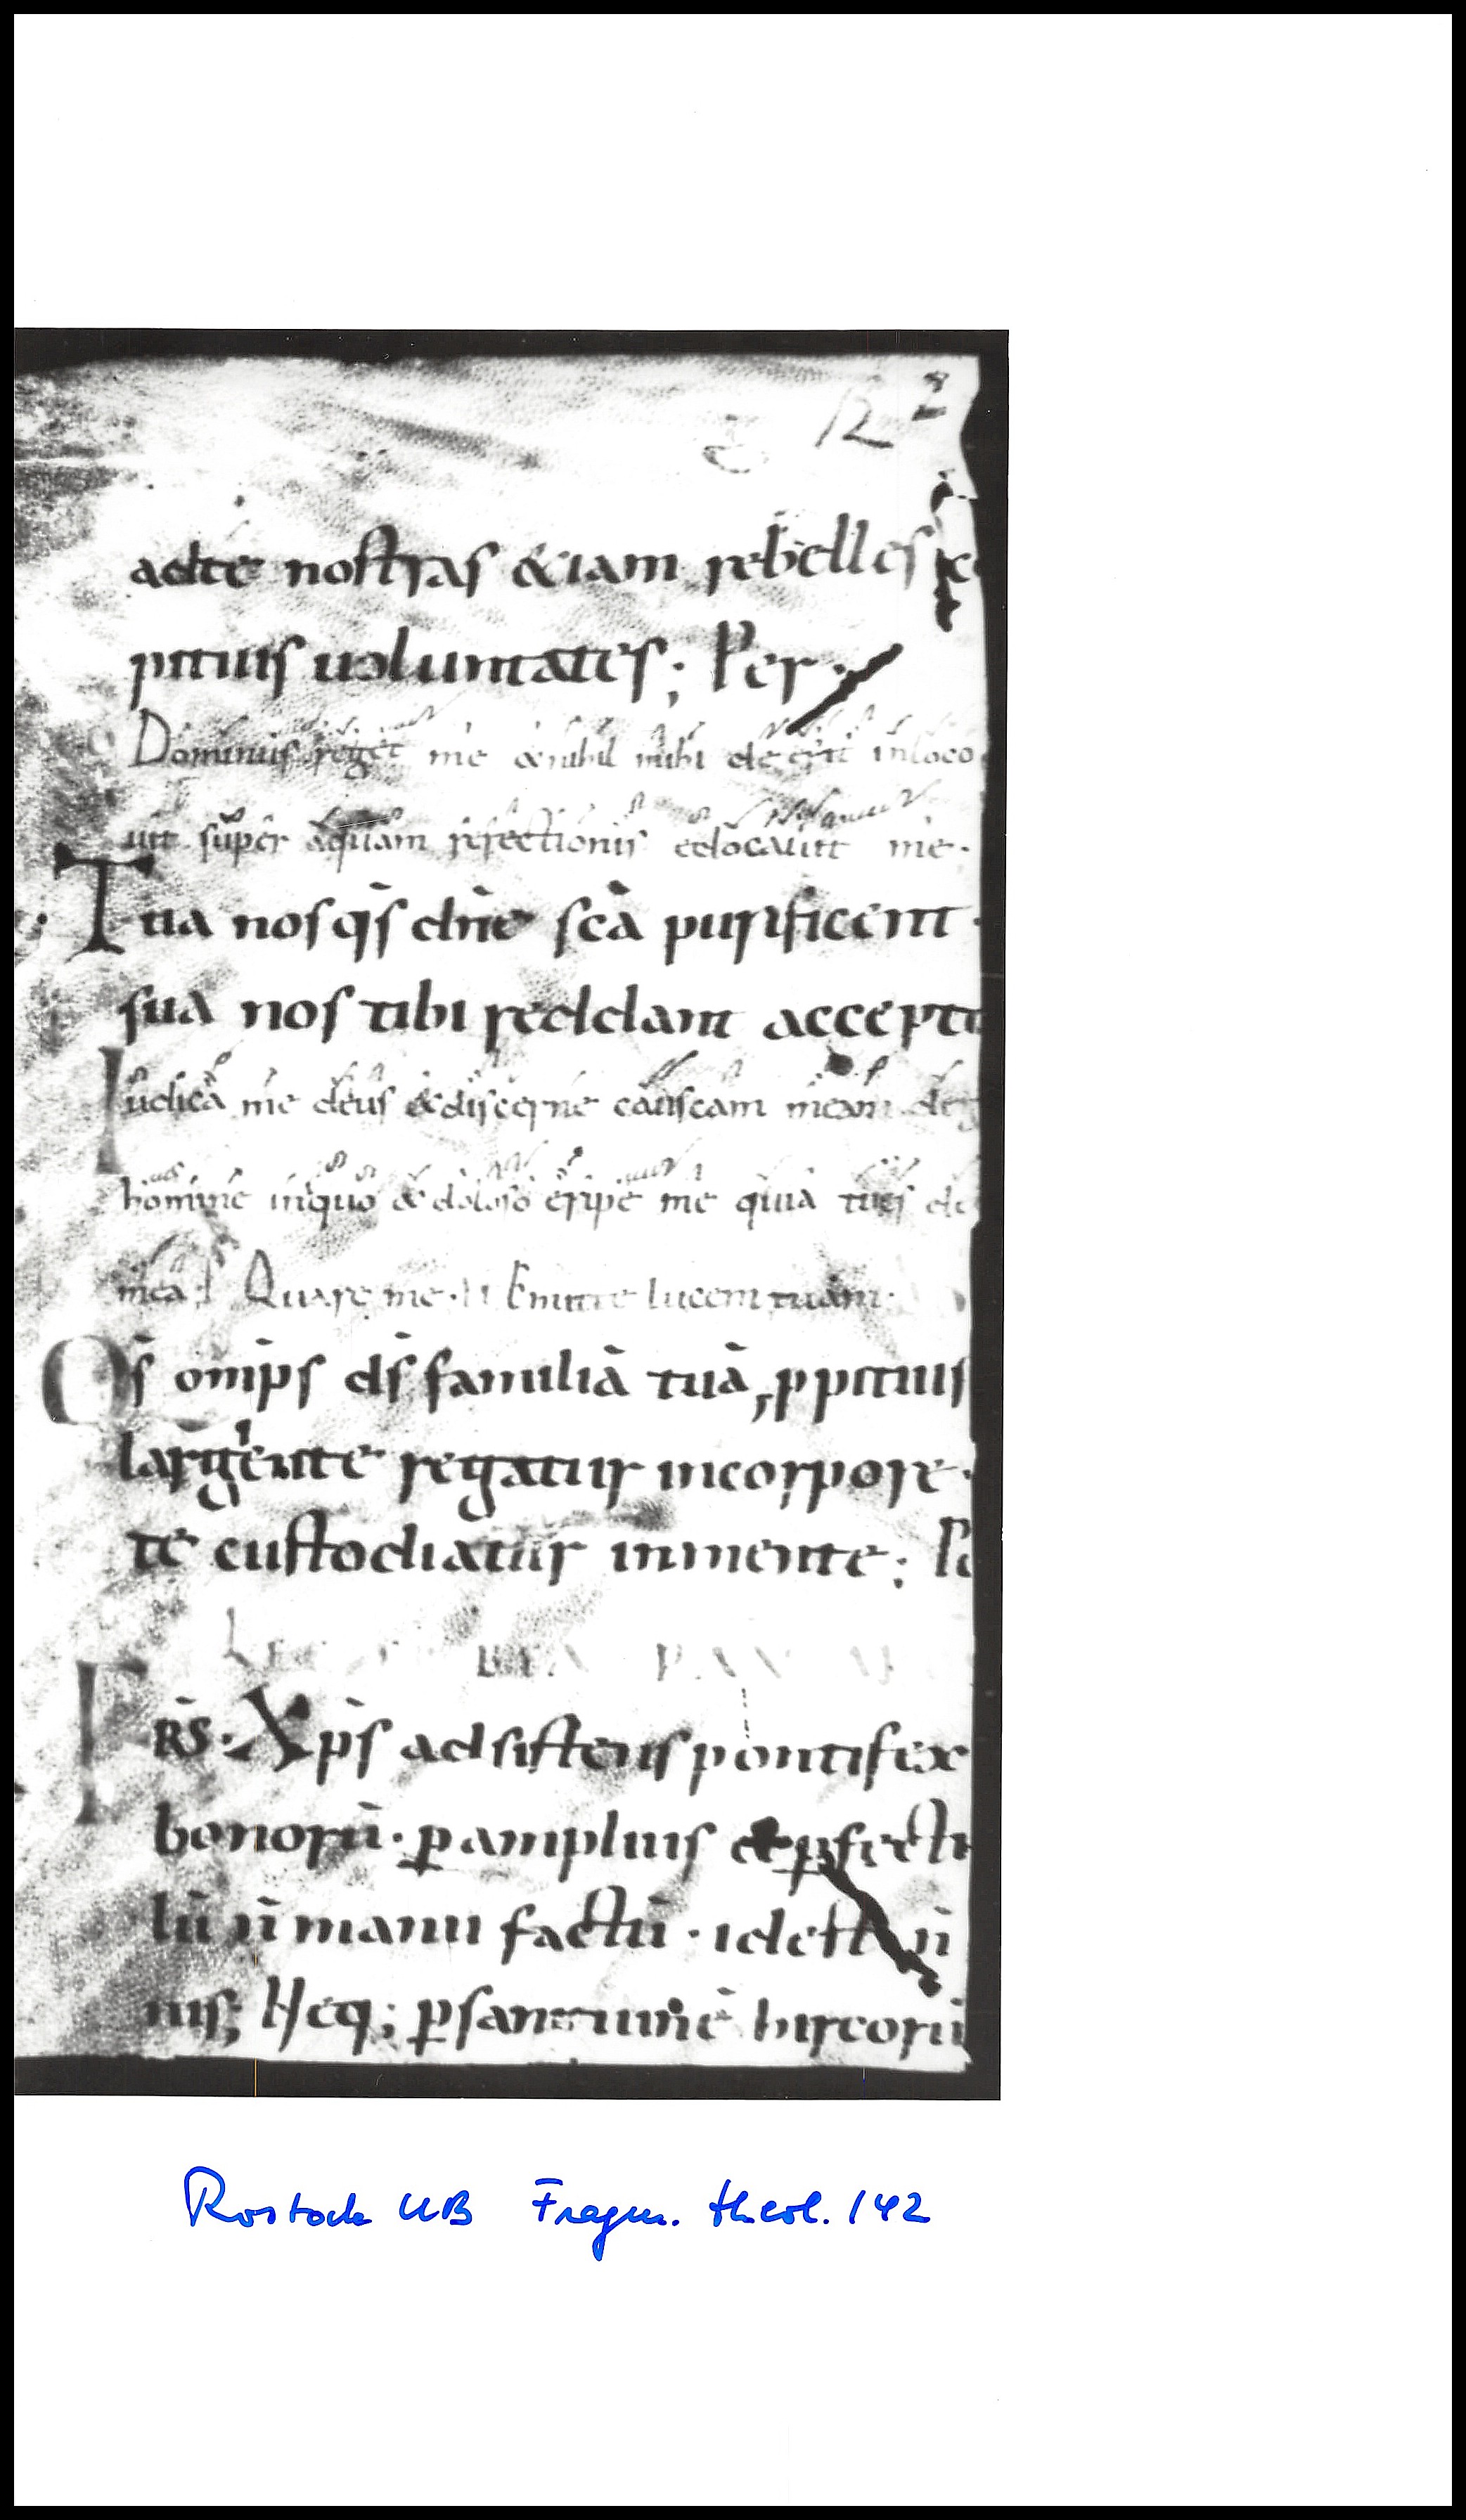 12 2
adte nostras &iam rebelles
pitius uoluntates; Per
Dominus reget me &nihil mihi deerit inloco
uit super aquam refectionis edocauit me.
Tua nos qs̄ dn̄e scā purificent.
sua nos tibi reddant accepto
Iudica me deus &discerne causcam meam deg
homine iniquo & doloso eripe me quia tu es de
mea; Quare me. Emitte lucem tuam.
Qs̄ om̄ps ds̄ familiā tuā ꝓpitius
largiente regatur incorpore.
te custodiatur inmente; Pe
RS. Xp̄s adsistens pontifex
bonorū. ꝑ amplius &ꝑfecti
lū n̄ manu factū. idest n̄
nis; Neq; ꝑ sanguinē hircorū
Rostock UB Fragm. theol. 142